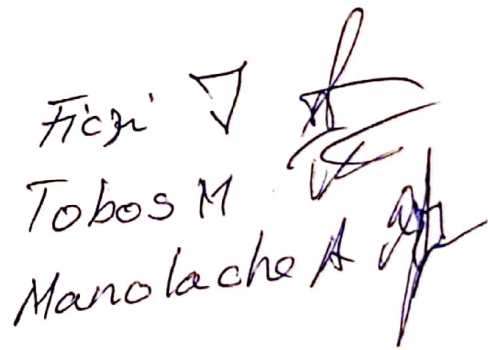 Ficzi J
Tobos M
Manolache A